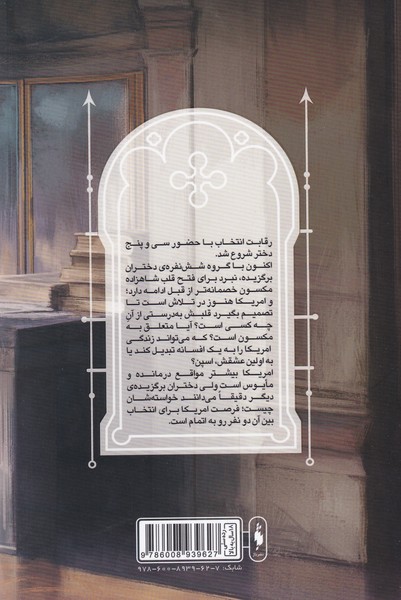 رقابت انتخاب با حضور سی و پنج
دختر شروع شد.
اکنون با گروه شش‌نفره‌ی دختران
برگزیده، نبرد برای فتح قلب شاهزاده
مکسون خصمانه‌تر از قبل ادامه دارد؛
و امریکا هنوز در تلاش است تا
تصمیم بگیرد قلبش به‌درستی از آنِ
چه کسی است؟ آیا متعلق به
مکسون است؟ که می‌تواند زندگی
امریکا را به یک افسانه تبدیل کند یا
به اولین عشقش، اسپن؟
امریکا بیشتر مواقع درمانده و
مأیوس است ولی دختران برگزیده‌ی
دیگر دقیقاً می‌دانند خواسته‌شان
چیست؛ فرصت امریکا برای انتخاب
بین آن دو نفر رو به اتمام است.
9 786008 939627
شابک: ۷-۶۲-۸۹۳۹-۶۰۰-۹۷۸